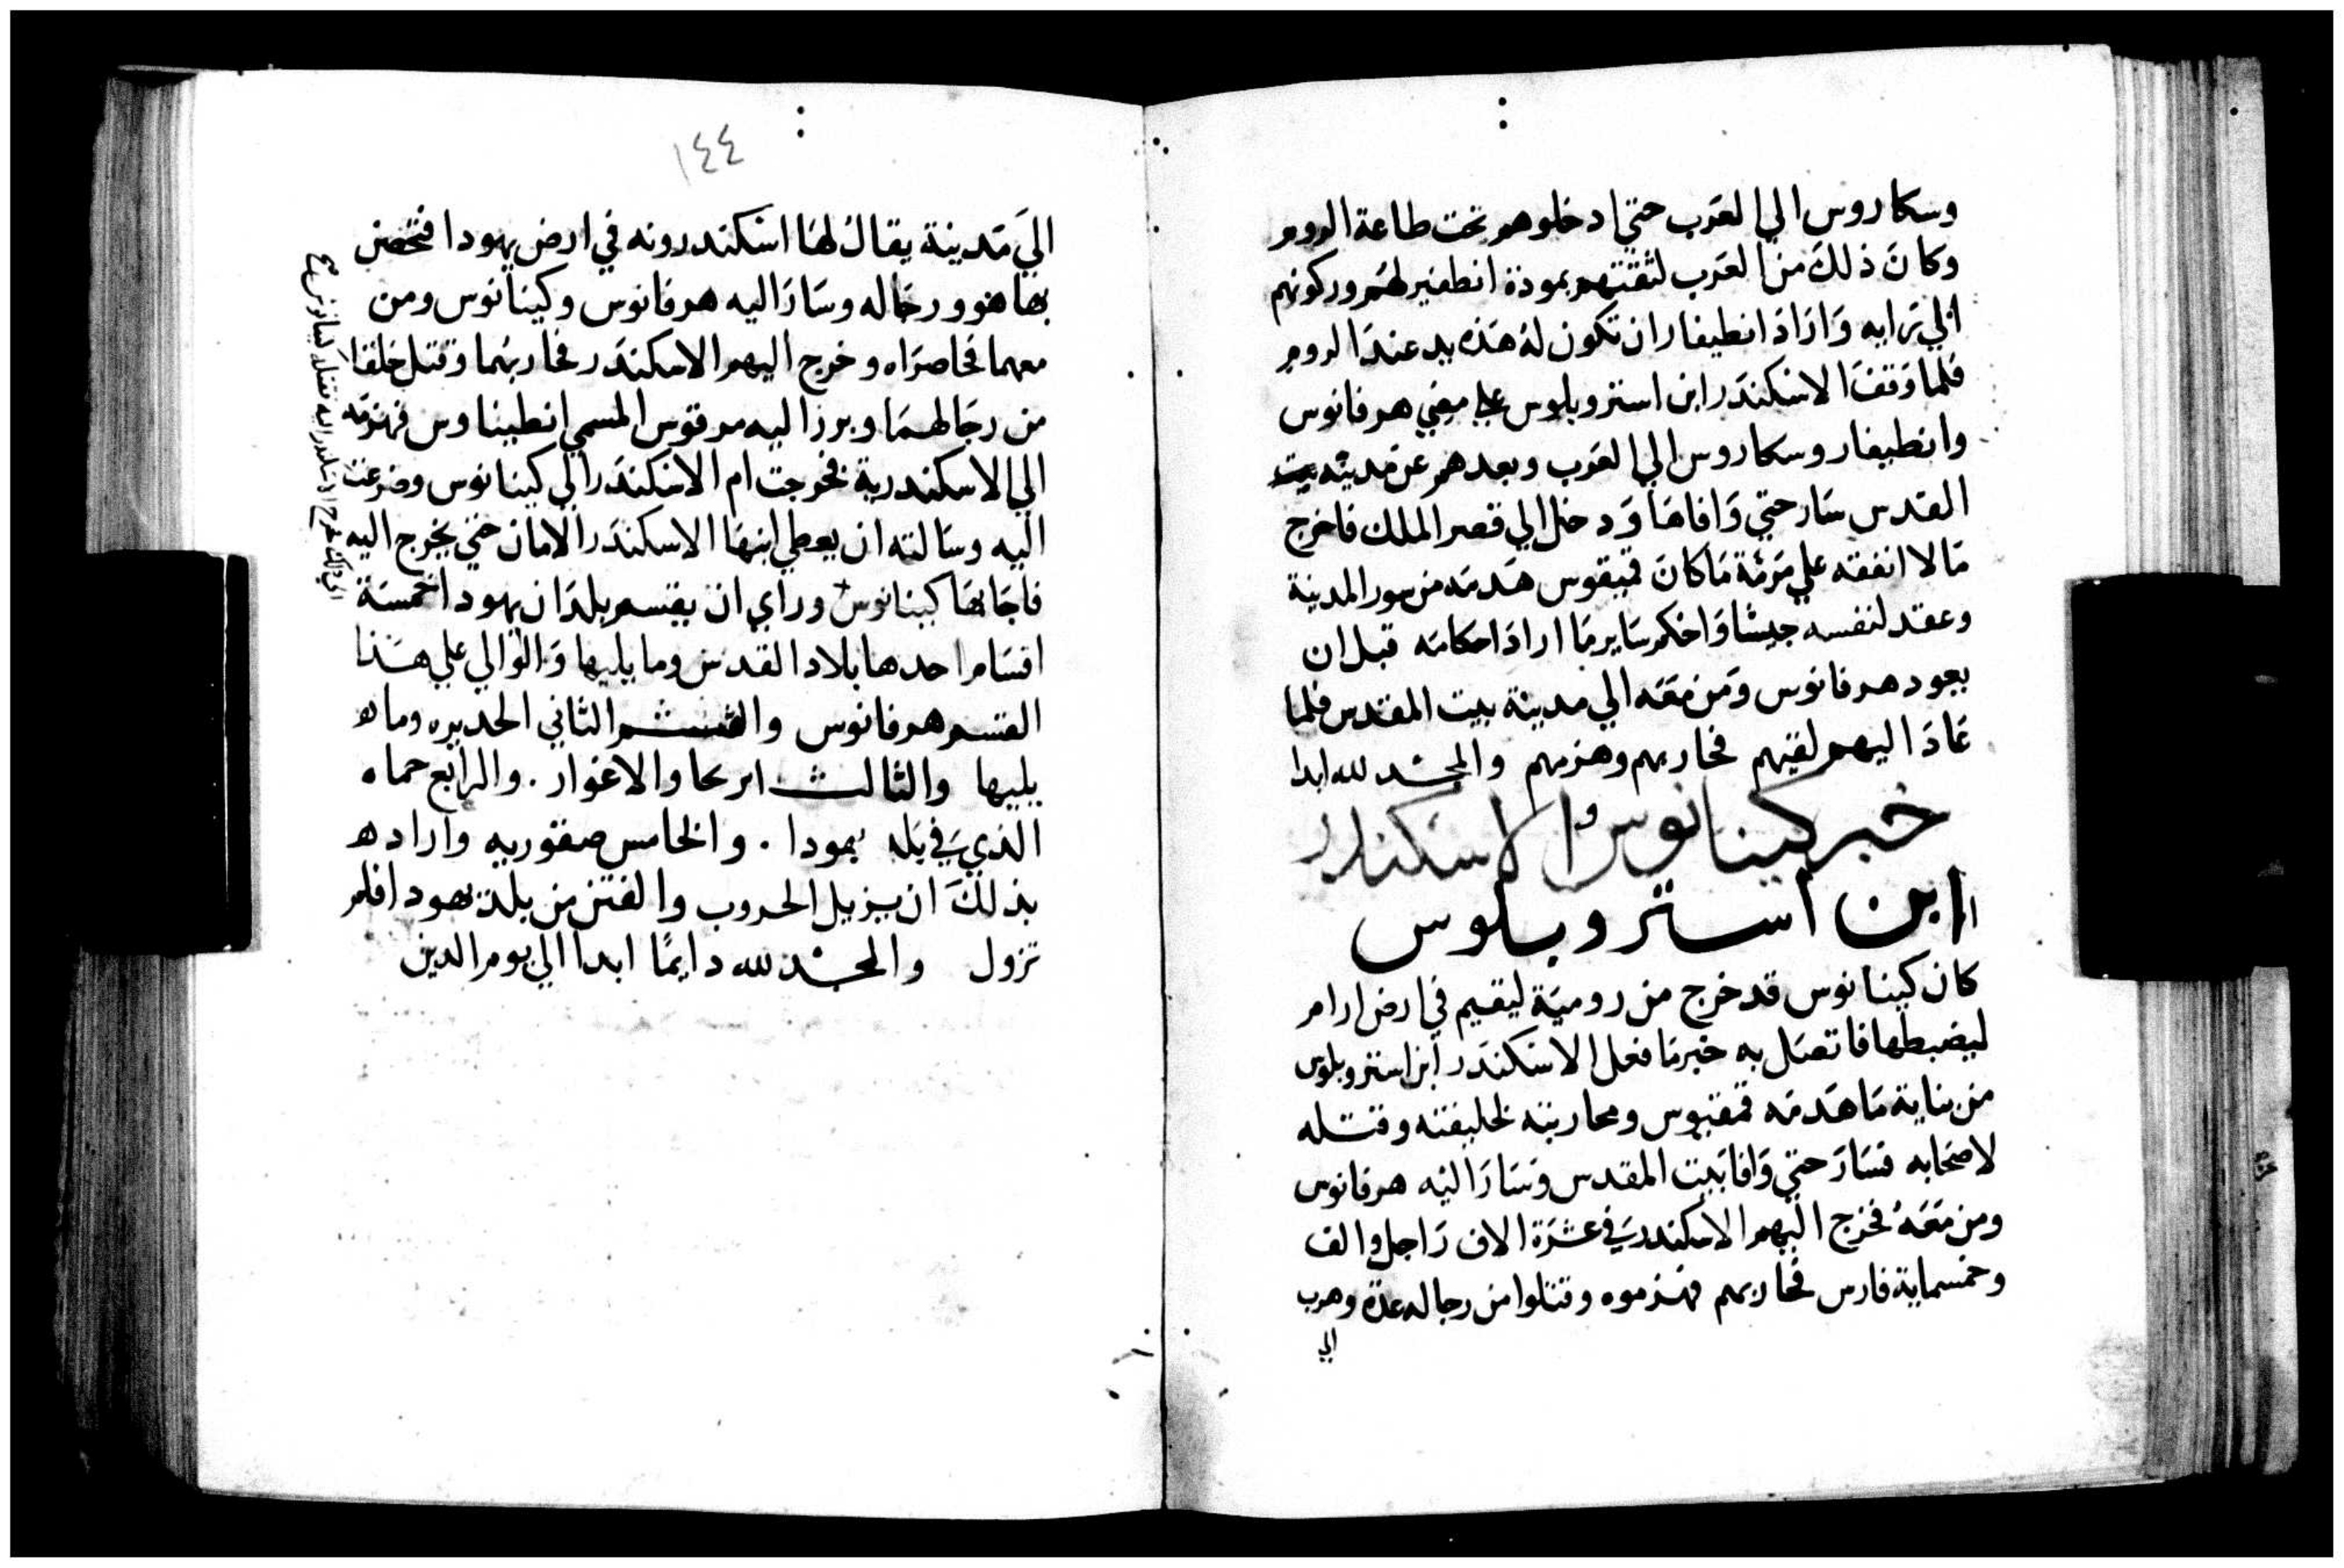 وسكاروس الي العرب حتي ادخلوهم تحت طاعة الروم
وكان ذلك من العرب لثقتهم بمودة انطفير لهم وركونهم
الي رايه واراد انطيفار ان تكون له هذه يد عند الروم
فلما وقف الاسكندر ابن استروبلوس علي مضي هرفانوس
وانطيفار وسكاروس الي العرب وبعدهم عن مدينة بيت
القدس سار حتي وافاها ودخل الي قصر الملك فاخرج
مالا انفقه علي مرمة ما كان قميقوس هدمه من سور المدينة
وعقد لنفسه جيشا واحكم ساير ما اراد احكامه قبل ان
يعود هرفانوس ومن معه الي مدينة بيت المقدس فلما
عاد اليهم لقيهم فحاربهم وهزمهم والمجد لله ابدا
خبر كينانوس والاسكندر
ابن استروبلوس
كان كينانوس قد خرج من رومية ليقيم في ارض ارام
ليضبطها فاتصل به خبر ما فعل الاسكندر ابن استروبلوس
من بناية ما هدمه قمقيوس ومحاربته لخليفته وقتله
لاصحابه فسار حتي وافا بيت المقدس وسار اليه هرفانوس
ومن معه فخرج اليهم الاسكندر في عشرة الاف راجل والف
وخمسماية فارس فحاربهم فهزموه وقتلوا من رجاله عدة وهرب
الي
١٤٤
الي مدينة يقال لها اسكندرونه في ارض يهودا فتحصن
بها هو ورجاله وسار اليه هرفانوس وكينانوس ومن
معهما فحاصراه وخرج اليهم الاسكندر فحاربهما وقتل خلقا
من رجالهما وبرز اليه مرقوس المسمي انطيناوس فهزمه
الي الاسكندرية فخرجت ام الاسكندر الي كينانوس وضرعت
اليه وسالته ان يعطي ابنها الاسكندر الامان حتي يخرج اليه
فاجابها كينانوس وراي ان يقسم بلدان يهودا خمسة
اقسام احدها بلاد القدس وما يليها والوالي علي هذا
القسم هرفانوس والقسم الثاني الحديره وما
يليها والثالث اريحا والاغوار . والرابع حماه
الذي في بلد يهودا . والخامس صفوريه واراد
بذلك ان يزيل الحروب والفتن من بلد يهودا فلم
تزول والمجد لله دايما ابدا الي يوم الدين